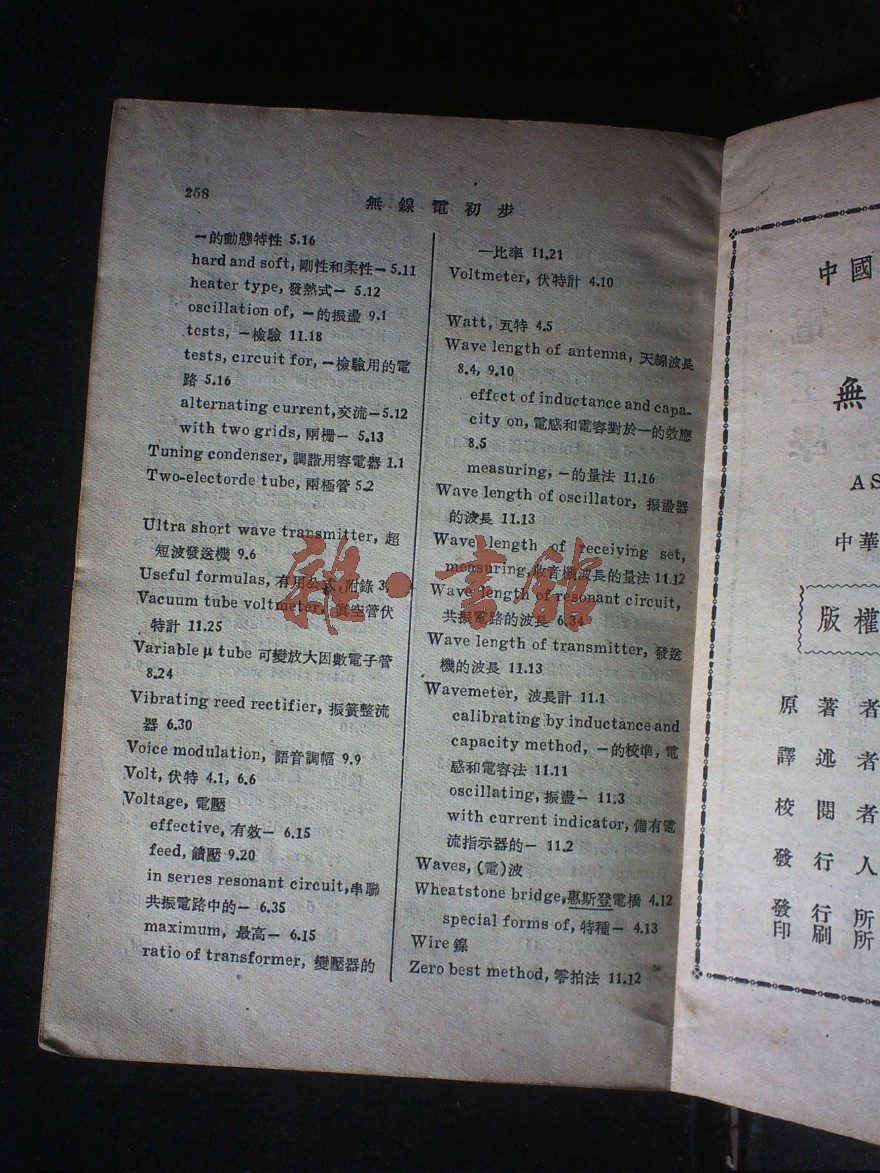 258
無線電初步
一的動態特性 5.16
hard and soft, 剛性和柔性一 5.11
heater type, 發熱式一 5.12
oscillation of, 一的振盪 9.1
tests, 一檢驗 11.18
tests, circuit for, 一檢驗用的電
路 5.16
alternating current, 交流一 5.12
with two grids, 兩柵一 5.13
Tuning condenser, 調諧用容電器 1.1
Two-electorde tube, 兩極管 5.2
Ultra short wave transmitter, 超
短波發送機 9.6
Useful formulas, 有用公式, 附錄 3,
Vacuum tube voltmeter, 眞空管伏
特計 11.25
Variable μ tube 可變放大因數電子管
8.24
Vibrating reed rectifier, 振簧整流
器 6.30
Voice modulation, 語音調幅 9.9
Volt, 伏特 4.1, 6.6
Voltage, 電壓
effective, 有效一 6.15
feed, 饋壓 9.20
in series resonant circuit, 串聯
共振電路中的一 6.35
maximum, 最高一 6.15
ratio of transformer, 變壓器的
一比率 11.21
Voltmeter, 伏特計 4.10
Watt, 瓦特 4.5
Wave length of antenna, 天線波長
8.4, 9.10
effect of inductance and capa-
city on, 電感和電容對於一的效應
8.5
measuring, 一的量法 11.16
Wave length of oscillator, 振盪器
的波長 11.13
Wave length of receiving set,
measuring, 收音機波長的量法 11.12
Wave length of resonant circuit,
共振電路的波長 6.34
Wave length of transmitter, 發送
機的波長 11.13
Wavemeter, 波長計 11.1
calibrating by inductance and
capacity method, 一的校準, 電
感和電容法 11.11
oscillating, 振盪一 11.3
with current indicator, 備有電
流指示器的一 11.2
Waves, (電)波
Wheatstone bridge, 惠斯登電橋 4.12
special forms of, 特種一 4.13
Wire 線
Zero best method, 零拍法 11.12
雜·書館
中國
無
AS
中華
版權
原著者
譯述者
校閱者
發行人
發行所
印刷所